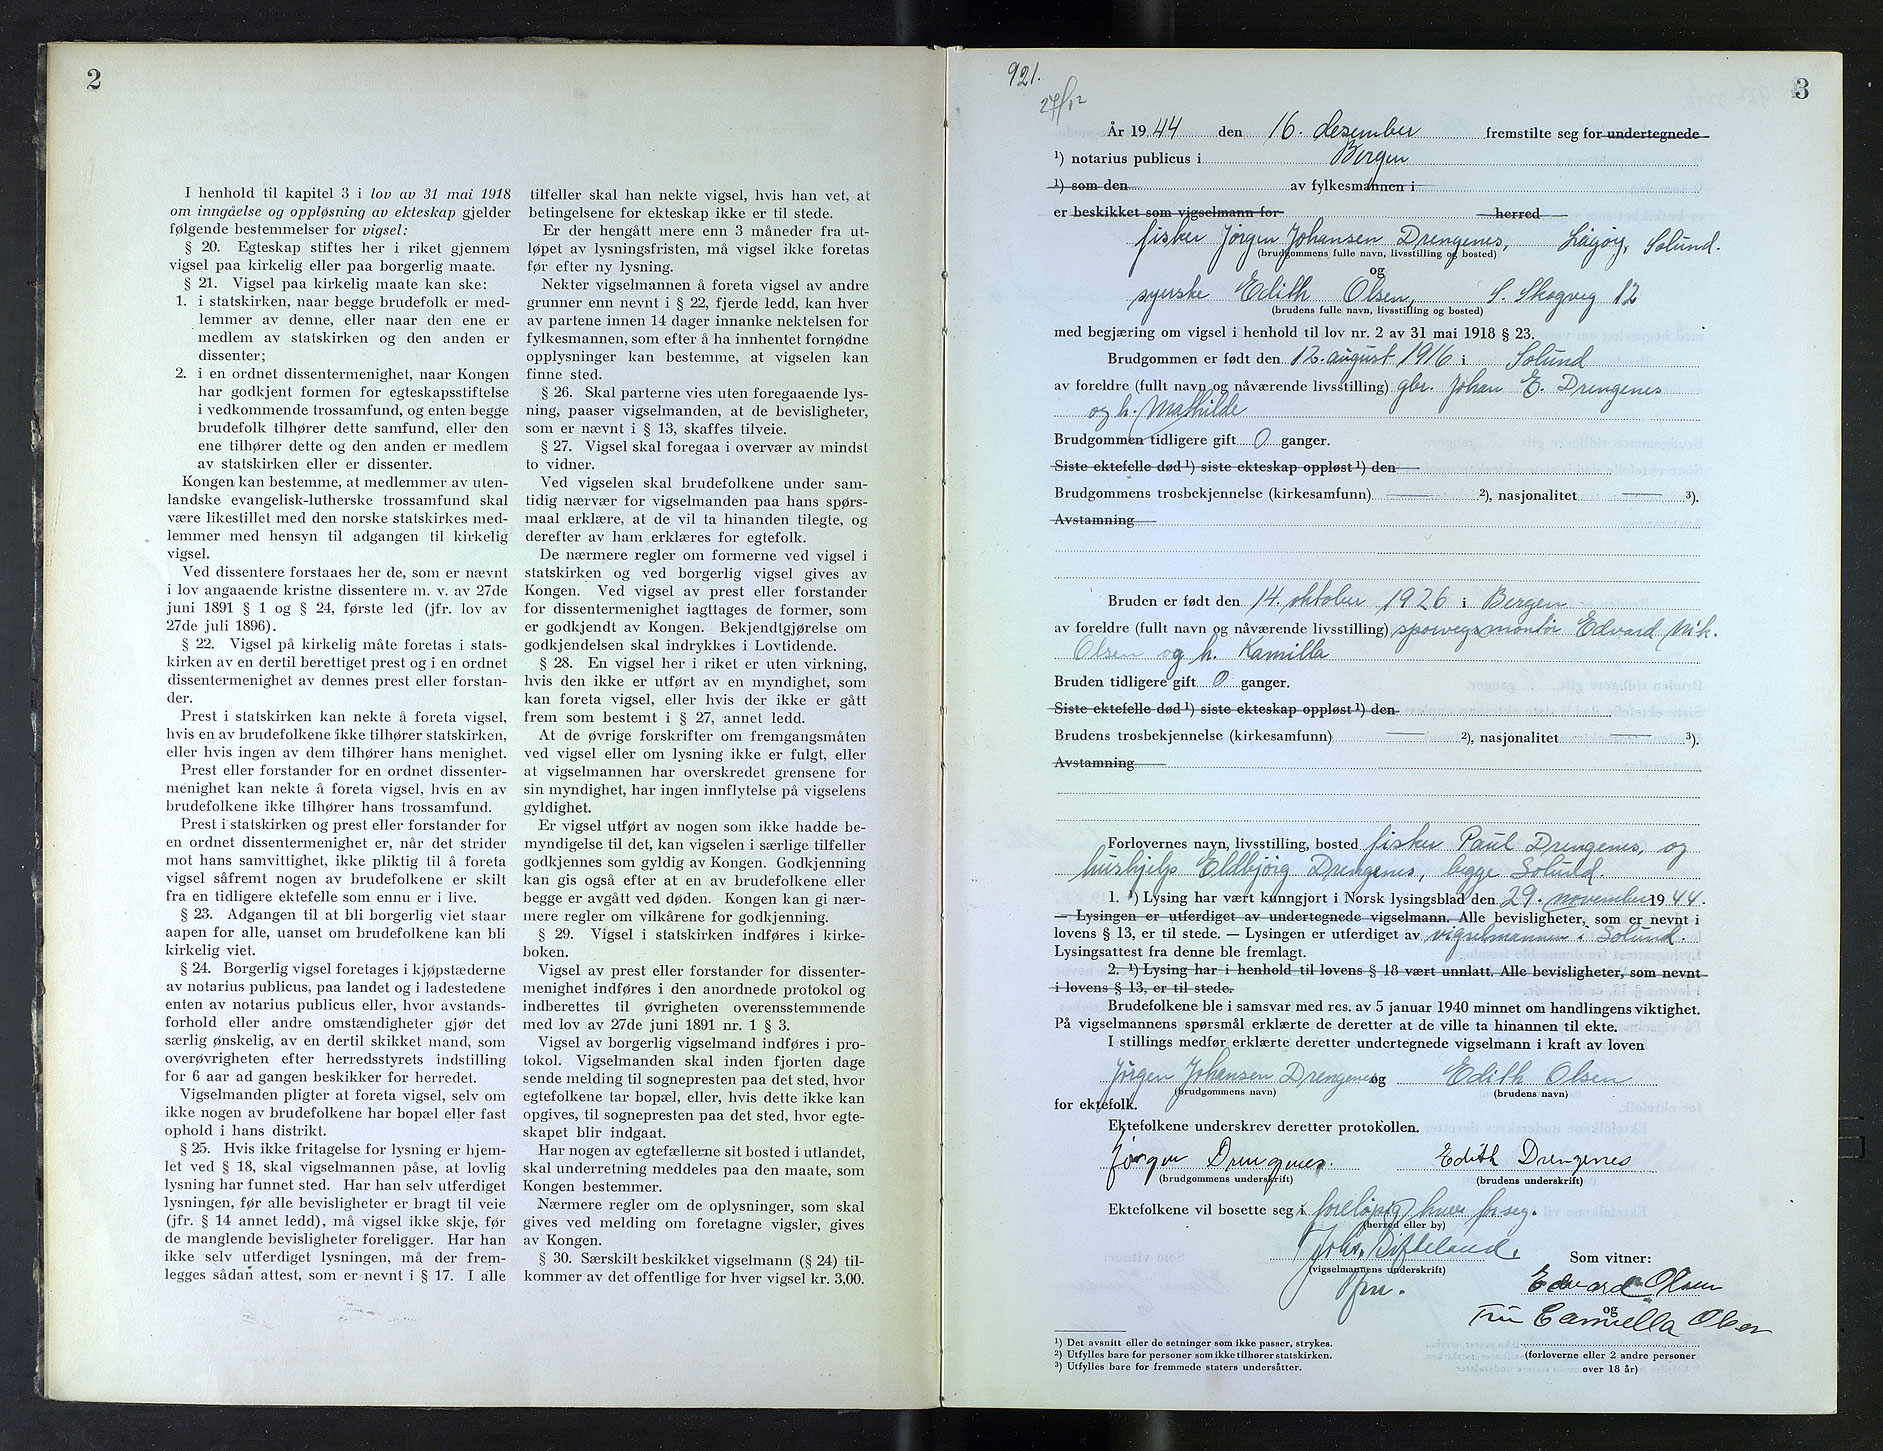 2
I henhold til kapitel 3 i lov av 31 mai 1918
om inngåelse og oppløsning av ekteskap gjelder
følgende bestemmelser for vigsel:
§ 20. Egteskap stiftes her i riket gjennem
vigsel paa kirkelig eller paa borgerlig maate.
§ 21. Vigsel paa kirkelig maate kan ske:
1. i statskirken, naar begge brudefolk er med-
lemmer av denne, eller naar den ene er
medlem av statskirken og den anden er
dissenter;
2. i en ordnet dissentermenighet, naar Kongen
har godkjent formen for egteskapsstiftelse
i vedkommende trossamfund, og enten begge
brudefolk tilhører dette samfund, eller den
ene tilhører dette og den anden er medlem
av statskirken eller er dissenter.
Kongen kan bestemme, at medlemmer av uten-
landske evangelisk-lutherske trossamfund skal
være likestillet med den norske statskirkes med-
lemmer med hensyn til adgangen til kirkelig
vigsel.
Ved dissentere forstaaes her de, som er nævnt
i lov angaaende kristne dissentere m. v. av 27de
juni 1891 § 1 og § 24, første led (jfr. lov av
27de juli 1896).
§ 22. Vigsel på kirkelig måte foretas i stats-
kirken av en dertil berettiget prest og i en ordnet
dissentermenighet av dennes prest eller forstan-
der.
Prest i statskirken kan nekte å foreta vigsel,
hvis en av brudefolkene ikke tilhører statskirken,
eller hvis ingen av dem tilhører hans menighet.
Prest eller forstander for en ordnet dissenter-
menighet kan nekte å foreta vigsel, hvis en av
brudefolkene ikke tilhører hans trossamfund.
Prest i statskirken og prest eller forstander for
en ordnet dissentermenighet er, når det strider
mot hans samvittighet, ikke pliktig til å foreta
vigsel såfremt nogen av brudefolkene er skilt
fra en tidligere ektefelle som ennu er i live.
§ 23. Adgangen til at bli borgerlig viet staar
aapen for alle, uanset om brudefolkene kan bli
kirkelig viet.
§ 24. Borgerlig vigsel foretages i kjøpstæderne
av notarius publicus, paa landet og i ladestedene
enten av notarius publicus eller, hvor avstands-
forhold eller andre omstændigheter gjør det
særlig ønskelig, av en dertil skikket mand, som
overøvrigheten efter herredsstyrets indstilling
for 6 aar ad gangen beskikker for herredet.
Vigselmanden pligter at foreta vigsel, selv om
ikke nogen av brudefolkene har bopæl eller fast
ophold i hans distrikt.
§ 25. Hvis ikke fritagelse for lysning er hjem-
let ved § 18, skal vigselmannen påse, at lovlig
lysning har funnet sted. Har han selv utferdiget
lysningen, før alle bevisligheter er bragt til veie
(jfr. § 14 annet ledd), må vigsel ikke skje, før
de manglende bevisligheter foreligger. Har han
ikke selv utferdiget lysningen, må der frem-
legges sådan attest, som er nevnt i § 17. I alle
tilfeller skal han nekte vigsel, hvis han vet, at
betingelsene for ekteskap ikke er til stede.
Er der hengått mere enn 3 måneder fra ut-
løpet av lysningsfristen, må vigsel ikke foretas
før efter ny lysning.
Nekter vigselmannen å foreta vigsel av andre
grunner enn nevnt i § 22, fjerde ledd, kan hver
av partene innen 14 dager innanke nektelsen for
fylkesmannen, som efter å ha innhentet fornødne
opplysninger kan bestemme, at vigselen kan
finne sted.
§ 26. Skal parterne vies uten foregaaende lys-
ning, paaser vigselmanden, at de bevisligheter,
som er nævnt i § 13, skaffes tilveie.
§ 27. Vigsel skal foregaa i overvær av mindst
to vidner.
Ved vigselen skal brudefolkene under sam-
tidig nærvær for vigselmanden paa hans spørs-
maal erklære, at de vil ta hinanden tilegte, og
derefter av ham erklæres for egtefolk.
De nærmere regler om formerne ved vigsel i
statskirken og ved borgerlig vigsel gives av
Kongen. Ved vigsel av prest eller forstander
for dissentermenighet iagttages de former, som
er godkjendt av Kongen. Bekjendtgjørelse om
godkjendelsen skal indrykkes i Lovtidende.
§ 28. En vigsel her i riket er uten virkning,
hvis den ikke er utført av en myndighet, som
kan foreta vigsel, eller hvis der ikke er gått
frem som bestemt i § 27, annet ledd.
At de øvrige forskrifter om fremgangsmåten
ved vigsel eller om lysning ikke er fulgt, eller
at vigselmannen har overskredet grensene for
sin myndighet, har ingen innflytelse på vigselens
gyldighet.
Er vigsel utført av nogen som ikke hadde be-
myndigelse til det, kan vigselen i særlige tilfeller
godkjennes som gyldig av Kongen. Godkjenning
kan gis også efter at en av brudefolkene eller
begge er avgått ved døden. Kongen kan gi nær-
mere regler om vilkårene for godkjenning.
§ 29. Vigsel i statskirken indføres i kirke-
boken.
Vigsel av prest eller forstander for dissenter-
menighet indføres i den anordnede protokol og
indberettes til øvrigheten overensstemmende
med lov av 27de juni 1891 nr. 1 § 3.
Vigsel av borgerlig vigselmand indføres i pro-
tokol. Vigselmanden skal inden fjorten dage
sende melding til sognepresten paa det sted, hvor
egtefolkene tar bopæl, eller, hvis dette ikke kan
opgives, til sognepresten paa det sted, hvor egte-
skapet blir indgaat.
Har nogen av egtefællerne sit bosted i utlandet,
skal underretning meddeles paa den maate, som
Kongen bestemmer.
Nærmere regler om de oplysninger, som skal
gives ved melding om foretagne vigsler, gives
av Kongen.
§ 30. Særskilt beskikket vigselmann (§ 24) til-
kommer av det offentlige for hver vigsel kr. 3,00.
921.
27/12
3
År 1944 den 16. desember fremstilte seg for undertegnede
¹) notarius publicus i Bergen
¹) som den av fylkesmannen i
er beskikket som vigselmann for herred
fisker Jørgen Johansen Drengenes, Lågøy, Solund.
(brudgommens fulle navn, livsstilling og bosted)
og
syerske Edith Olsen, S. Skogveg 12
(brudens fulle navn, livsstilling og bosted)
med begjæring om vigsel i henhold til lov nr. 2 av 31 mai 1918 § 23.
Brudgommen er født den 12. august 1916 i Solund
av foreldre (fullt navn og nåværende livsstilling) gbr. Johan E. Drengenes
og h. Mathilde
Brudgommen tidligere gift 0 ganger.
Siste ektefelle død ¹) siste ekteskap oppløst ¹) den
Brudgommens trosbekjennelse (kirkesamfunn) ²), nasjonalitet ³).
Avstamning
Bruden er født den 14. oktober 1926 i Bergen
av foreldre (fullt navn og nåværende livsstilling) sporvegsmontør Edvard Nik.
Olsen og h. Kamilla
Bruden tidligere gift 0 ganger.
Siste ektefelle død ¹) siste ekteskap oppløst ¹) den
Brudens trosbekjennelse (kirkesamfunn) ²), nasjonalitet ³).
Avstamning
Forlovernes navn, livsstilling, bosted fisker Paul Drengenes, og
hushjelp Eldbjørg Drengenes, begge Solund.
1. ¹) Lysing har vært kunngjort i Norsk lysingsblad den 29. november 1944.
— Lysingen er utferdiget av undertegnede vigselmann. Alle bevisligheter, som er nevnt i
lovens § 13, er til stede. — Lysingen er utferdiget av vigselmannen i Solund.
Lysingsattest fra denne ble fremlagt.
2. ¹) Lysing har i henhold til lovens § 18 vært unnlatt. Alle bevisligheter, som nevnt
i lovens § 13, er til stede.
Brudefolkene ble i samsvar med res. av 5 januar 1940 minnet om handlingens viktighet.
På vigselmannens spørsmål erklærte de deretter at de ville ta hinannen til ekte.
I stillings medfør erklærte deretter undertegnede vigselmann i kraft av loven
Jørgen Johansen Drengenes og Edith Olsen
(brudgommens navn) (brudens navn)
for ektefolk.
Ektefolkene underskrev deretter protokollen.
Jørgen Drengenes. Edith Drengenes
(brudgommens underskrift) (brudens underskrift)
Ektefolkene vil bosette seg i foreløpig hver for seg.
(herred eller by)
Som vitner:
(vigselmannens underskrift)
Edvard Olsen
og
Fru Camilla Olsen
(forloverne eller 2 andre personer
over 18 år)
¹) Det avsnitt eller de setninger som ikke passer, strykes.
²) Utfylles bare for personer som ikke tilhører statskirken.
³) Utfylles bare for fremmede staters undersåtter.